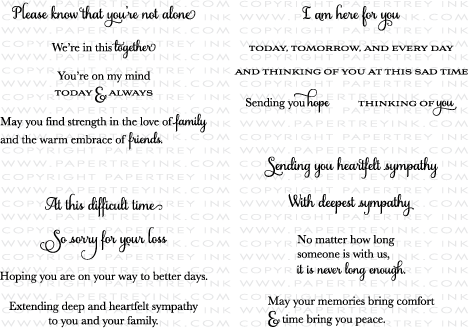 Please know that you're not alone
We're in this together
You're on my mind
TODAY & ALWAYS
May you find strength in the love of family
and the warm embrace of friends.
At this difficult time
So sorry for your loss
Hoping you are on your way to better days.
Extending deep and heartfelt sympathy
to you and your family.
I am here for you
TODAY, TOMORROW, AND EVERY DAY
AND THINKING OF YOU AT THIS SAD TIME
Sending you hope
THINKING OF you
Sending you heartfelt sympathy
With deepest sympathy
No matter how long
someone is with us,
it is never long enough.
May your memories bring comfort
& time bring you peace.